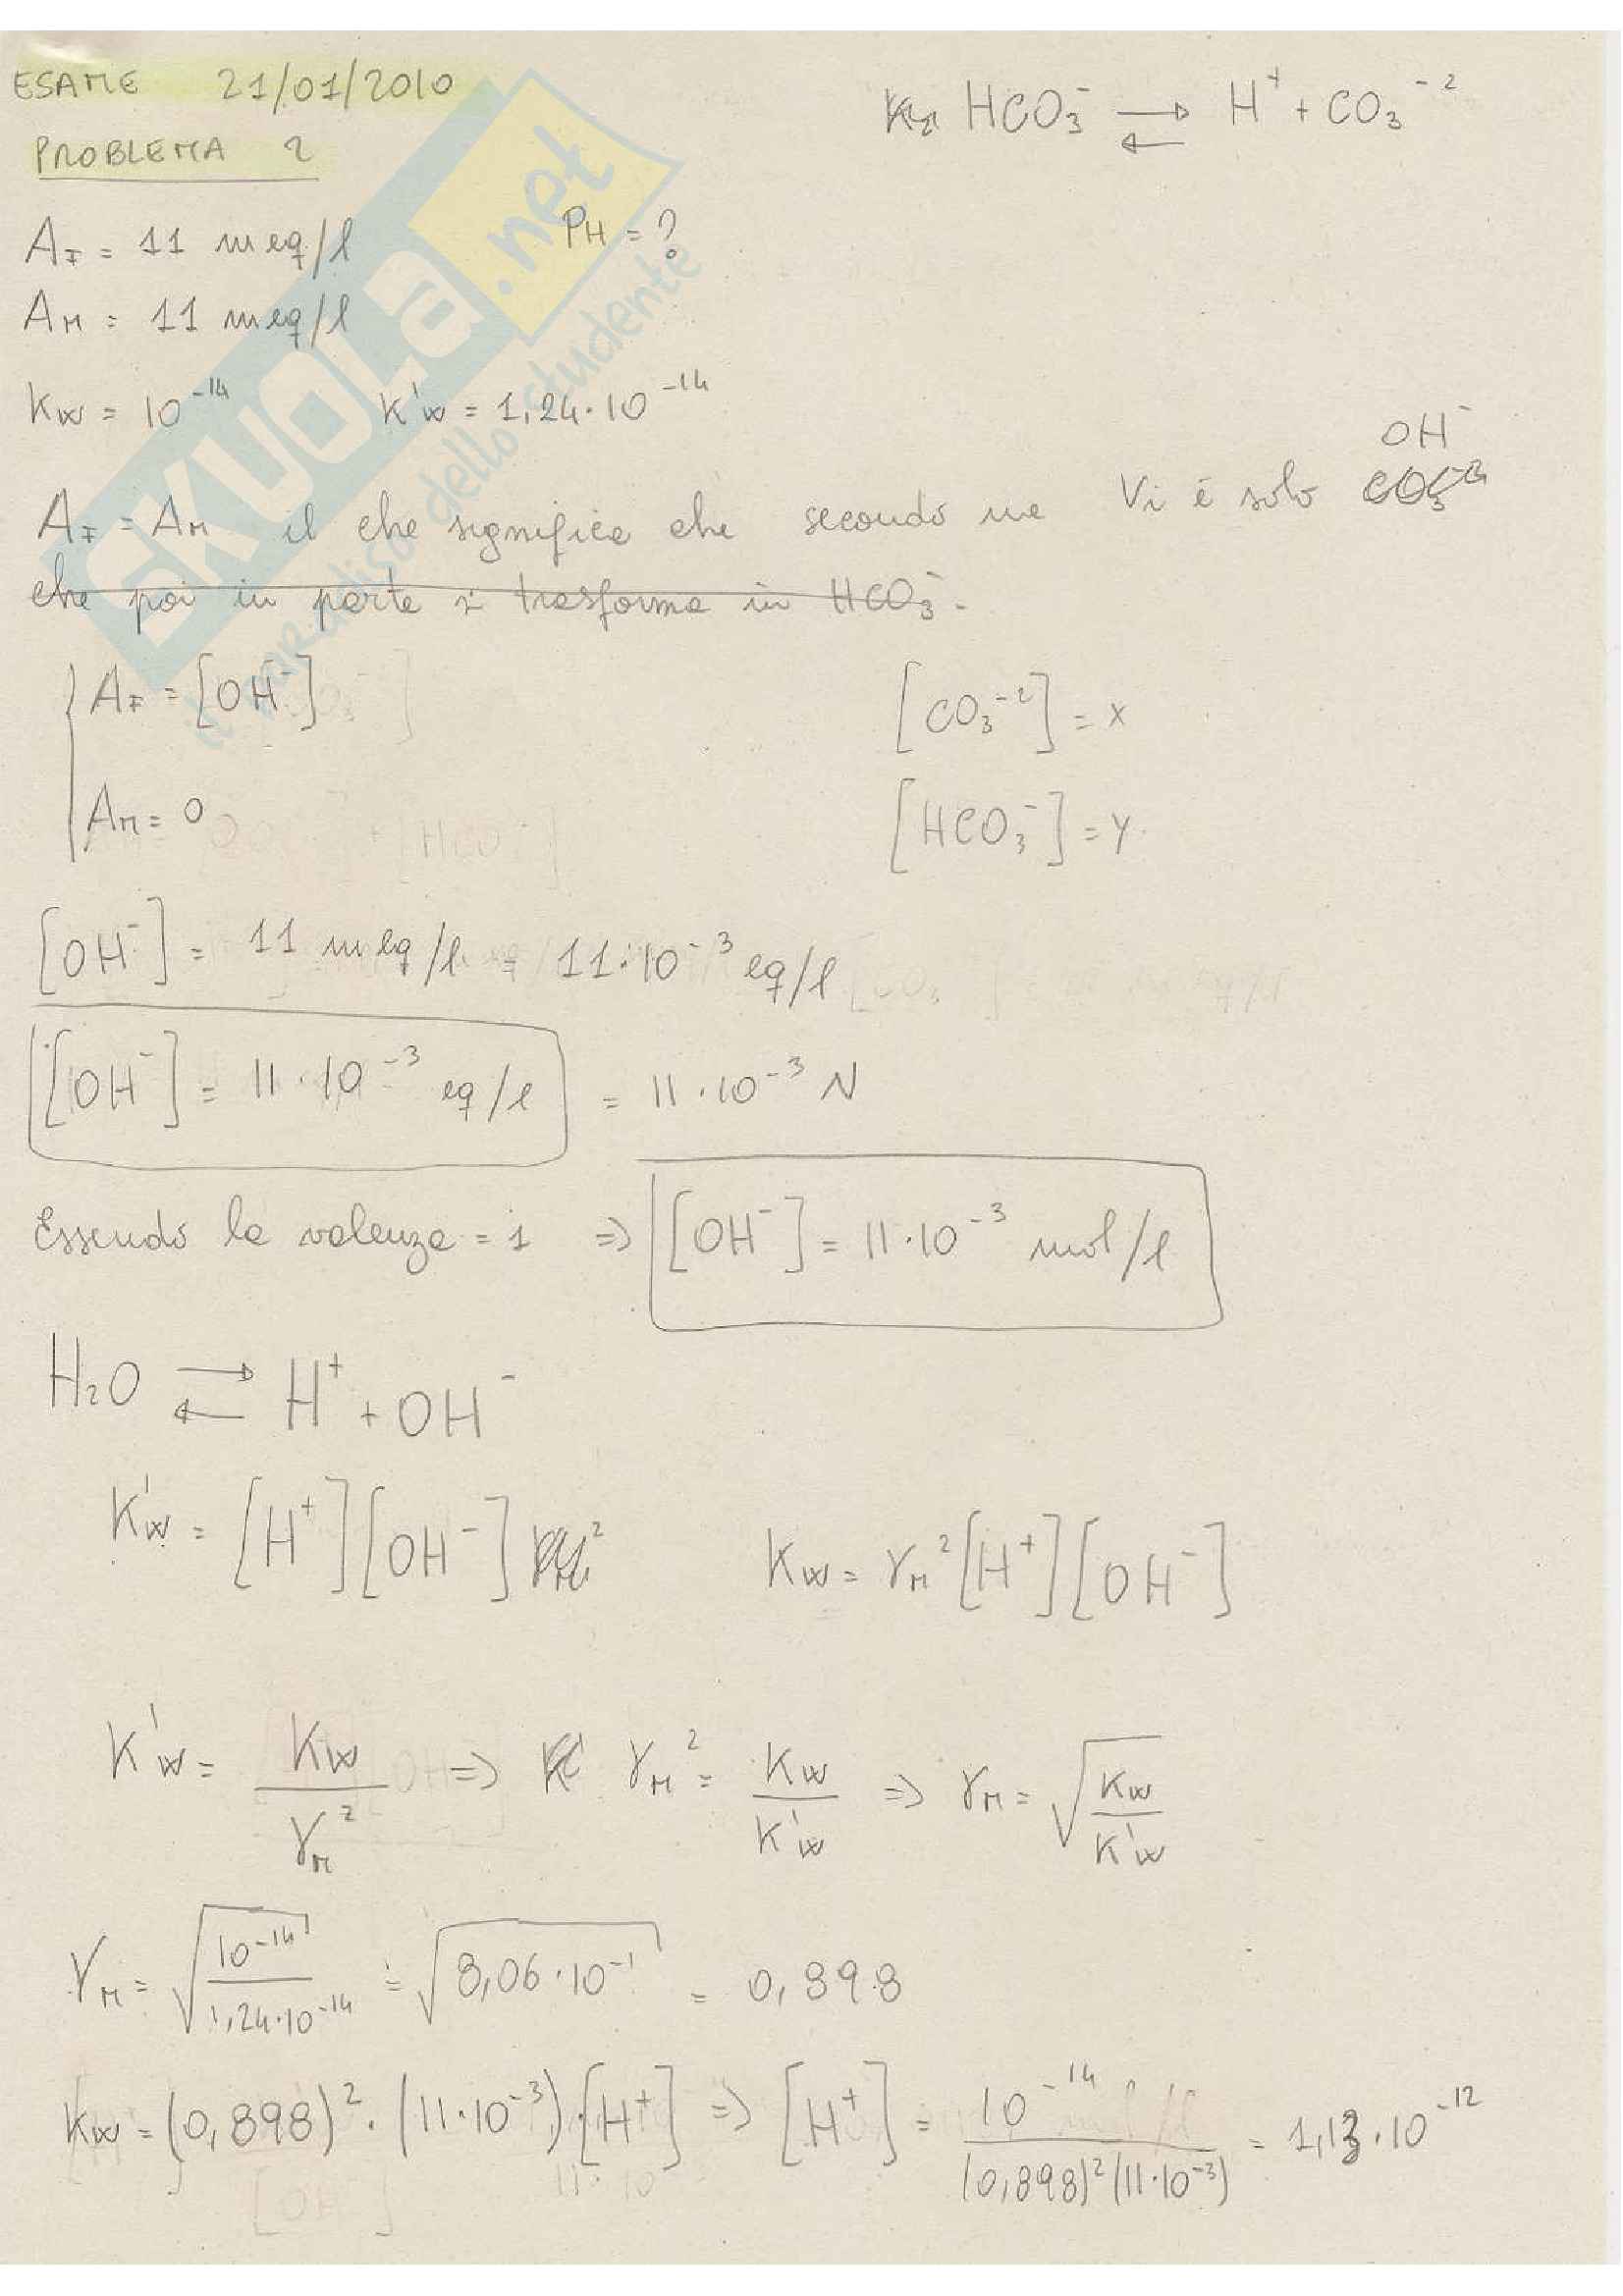 ESAME 21/01/2010
PROBLEMA 2
HCO₃⁻ ⇄ H⁺ + CO₃⁻²
A_F = 11 meq/l PH = ?
A_M = 11 meq/l
Kw = 10⁻¹⁴ K'w = 1,24·10⁻¹⁴
OH⁻
A_F = A_M il che significa che secondo me Vi è solo
che poi in parte si trasforma in HCO₃⁻.
A_F = [OH⁻] [CO₃⁻²] = x
A_M = 0 [HCO₃⁻] = y
[OH⁻] = 11 meq/l = 11·10⁻³ eq/l
[OH⁻] = 11·10⁻³ eq/l = 11·10⁻³ N
Essendo la valenza = 1 ⇒ [OH⁻] = 11·10⁻³ mol/l
H₂O ⇄ H⁺ + OH⁻
K'w = [H⁺][OH⁻] Kw = γ_M² [H⁺][OH⁻]
K'w = Kw / γ_M² ⇒ γ_M² = Kw / K'w ⇒ γ_M = √(Kw / K'w)
γ_M = √(10⁻¹⁴ / 1,24·10⁻¹⁴) = √(8,06·10⁻¹) = 0,898
Kw = (0,898)² · (11·10⁻³)·[H⁺] ⇒ [H⁺] = 10⁻¹⁴ / (0,898)²(11·10⁻³) = 1,13·10⁻¹²
SKUOLA.net
il paradiso dello studente